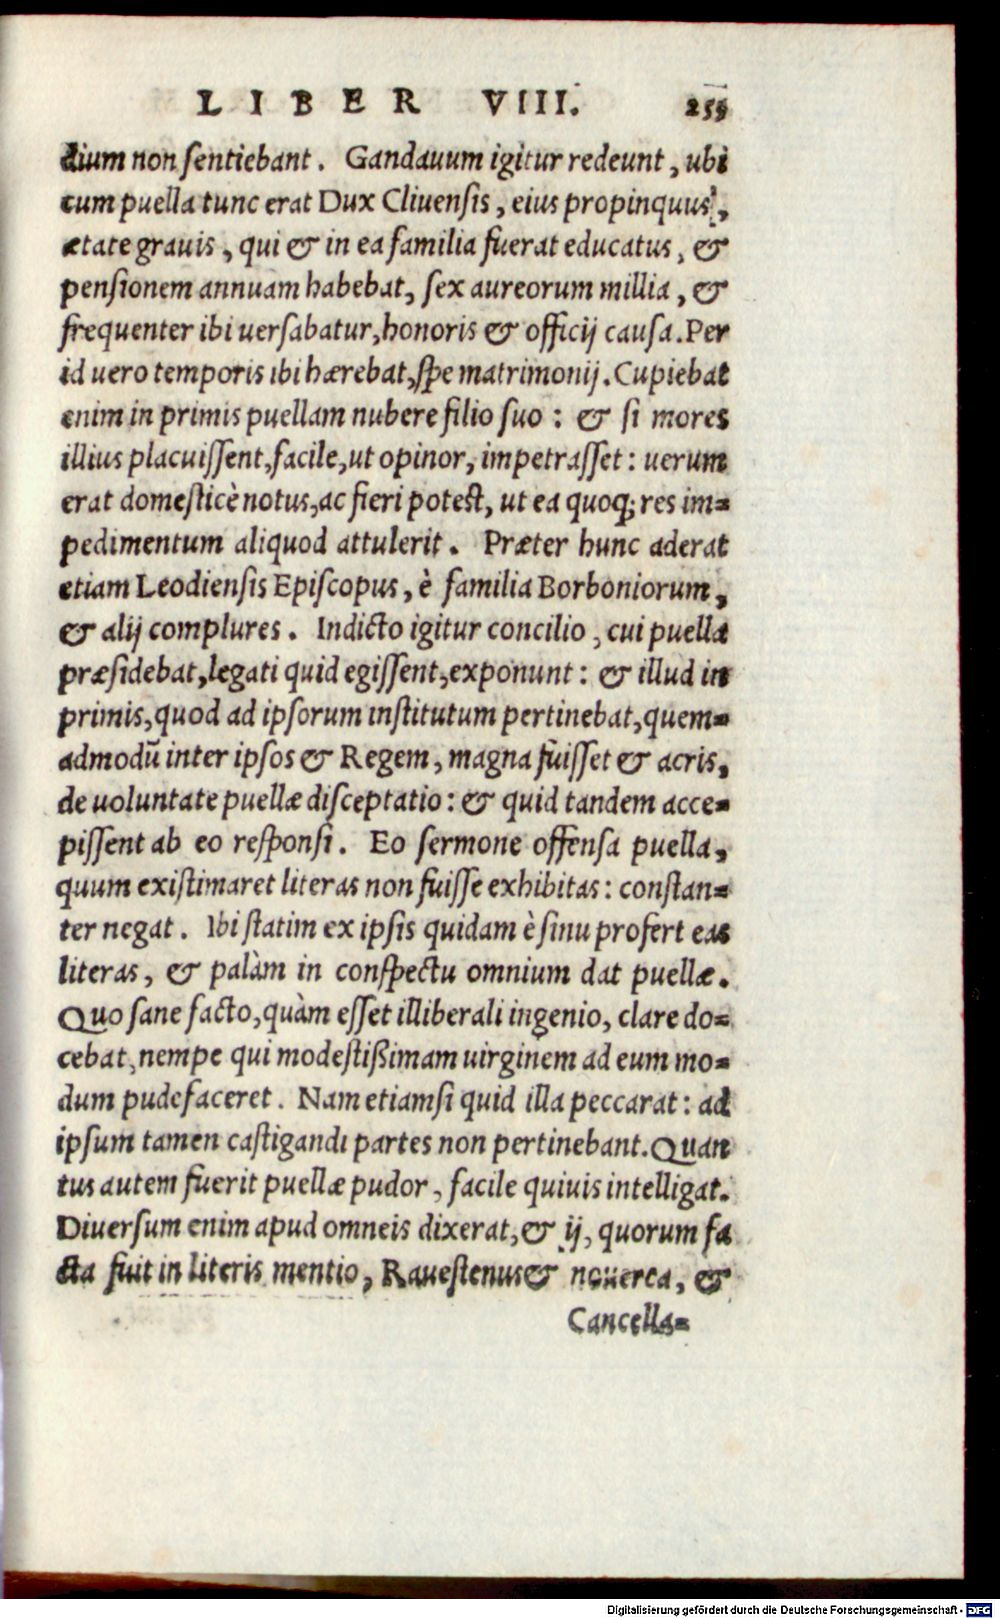 LIBER VIII. 255
dium non sentiebant. Gandauum igitur redeunt, ubi
cum puella tunc erat Dux Cliuensis, eius propinquus,
ætate grauis, qui & in ea familia fuerat educatus, &
pensionem annuam habebat, sex aureorum millia, &
frequenter ibi uersabatur, honoris & officij causa. Per
id uero temporis ibi hærebat, spe matrimonij. Cupiebat
enim in primis puellam nubere filio suo: & si mores
illius placuissent, facile, ut opinor, impetrasset: uerum
erat domesticè notus, ac fieri potest, ut ea quoq; res im=
pedimentum aliquod attulerit. Præter hunc aderat
etiam Leodiensis Episcopus, è familia Borboniorum,
& alij complures. Indicto igitur concilio, cui puella
præsidebat, legati quid egissent, exponunt: & illud in
primis, quod ad ipsorum institutum pertinebat, quem=
admodū inter ipsos & Regem, magna fuisset & acris,
de uoluntate puellæ disceptatio: & quid tandem acce=
pissent ab eo responsi. Eo sermone offensa puella,
quum existimaret literas non fuisse exhibitas: constan=
ter negat. Ibi statim ex ipsis quidam è sinu profert eas
literas, & palàm in conspectu omnium dat puellæ.
Quo sane facto, quàm esset illiberali ingenio, clare do=
cebat, nempe qui modestißimam uirginem ad eum mo=
dum pudefaceret. Nam etiamsi quid illa peccarat: ad
ipsum tamen castigandi partes non pertinebant. Quan
tus autem fuerit puellæ pudor, facile quiuis intelligat.
Diuersum enim apud omneis dixerat, & ij, quorum fa
cta fuit in literis mentio, Rauestenus & nouerca, &
Cancella=
Digitalisierung gefördert durch die Deutsche Forschungsgemeinschaft - DFG